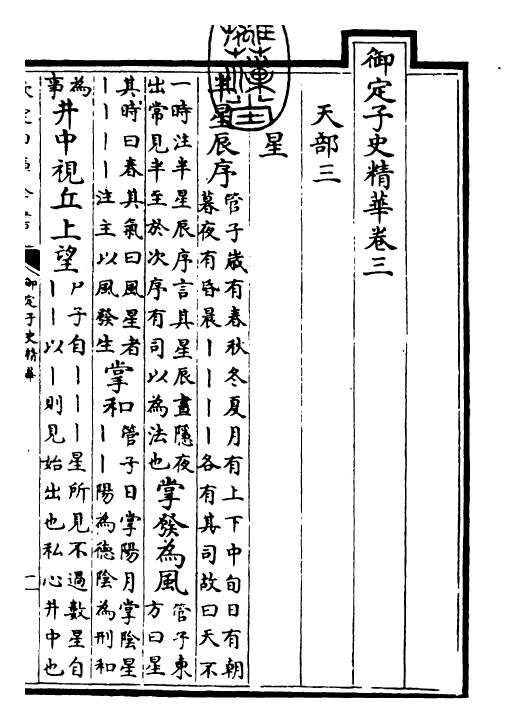 御定子史精華卷三
天部三
星
半星辰序
管子歲有春秋冬夏月有上下中旬日有朝
暮夜有昏晨丨丨丨丨各有其司故曰天不
一時注半星辰序言其星辰晝隱夜
出常見半至於次序有司以為法也
掌發為風
管子東
方曰星
其時曰春其氣曰風星者
丨丨丨丨注主以風發生
掌和
管子日掌陽月掌陰星
丨丨陽為德陰為刑和
為
事
井中視丘上望
尸子自丨丨丨星所見不過數星自
丨丨以丨則見始出也私心井中也
御定子史精華